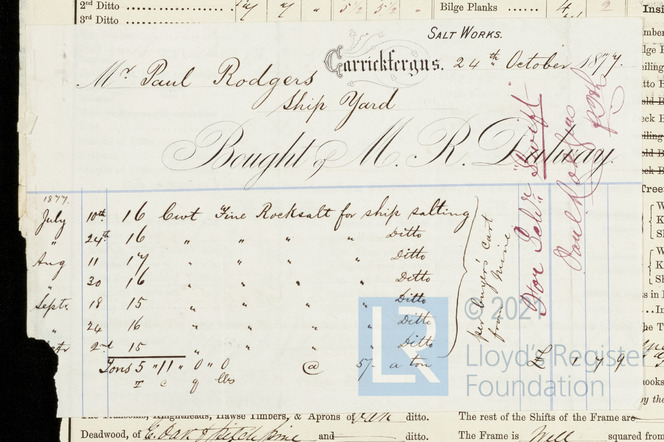 2nd Ditto
3rd Ditto
Bilge Planks
SALT WORKS.
Carrickfergus. 24th October 1877.
Mr Paul Rodgers
Ship Yard
Bought of M. R. Dalway.
1877.
July 10th 16 Cwt Fine Rocksalt for ship salting
" 24th 16 " " " " Ditto
Aug 11 17 " " " " Ditto
" 30 16 " " " " Ditto
Septr 18 15 " " " " Ditto
" 24 16 " " " " Ditto
2nd 15 " " " Ditto
Tons 5 " 11 " 0 " 0 @ 5/- a ton
T C q lbs
per buyers' cart
from mine
For Schr Swift
Paul Rodgers
£1 7 9
© 202
LR
Lloyd's Register
Foundation
ditto.
The rest of the Shifts of the Frame are
Deadwood, of E. Oak & Pitch Pine and ditto.
The Frame is well squared from